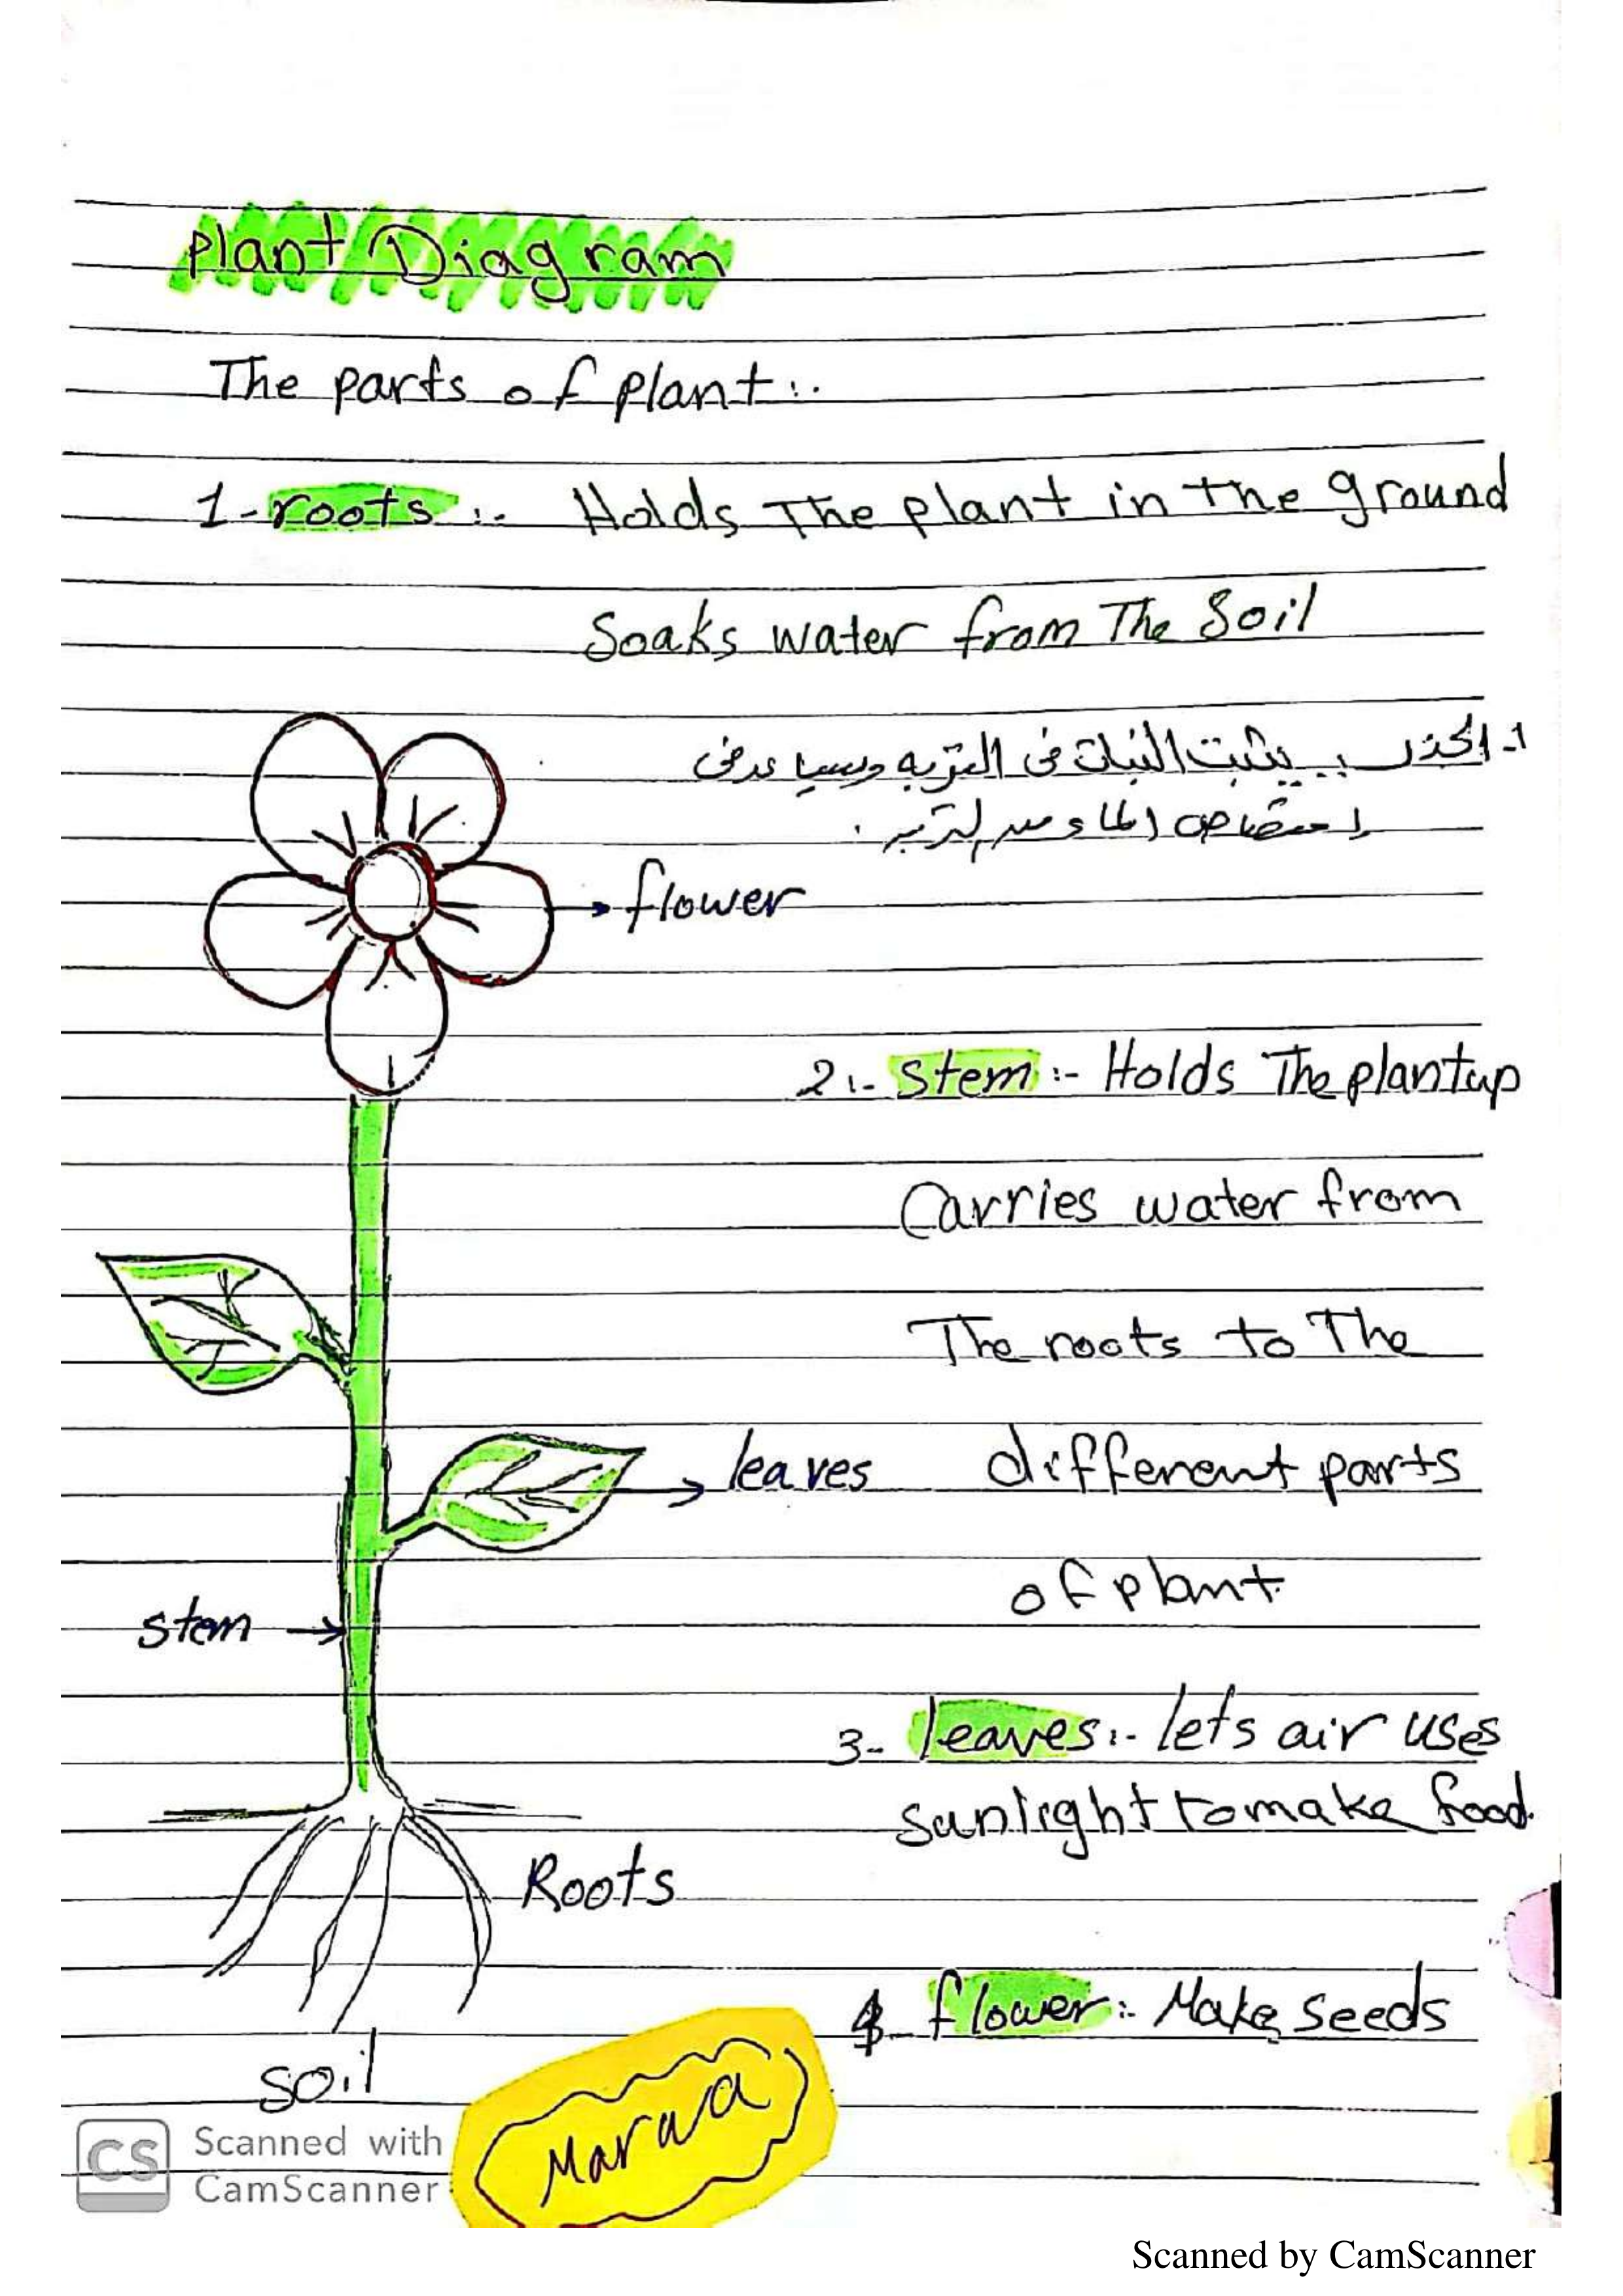 Plant Diagram
The parts of plant:.
1- roots :- Holds The plant in the ground
Soaks water from The Soil
1- الجذر :- يثبت النبات فى التربه ويساعد فى
امتصاص الماء من التربه .
flower
2:- Stem :- Holds The plant up
Carries water from
The roots to The
leaves different parts
of plant.
stem
3- leaves :- lets air uses
sunlight to make food.
Roots
4- flower :- Make seeds
soil
Marwa
CS Scanned with
CamScanner
Scanned by CamScanner